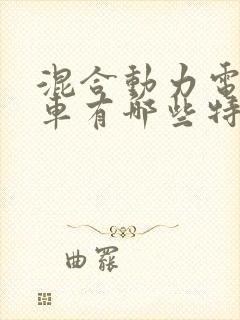 混合動力電
車有哪些特
曲罷